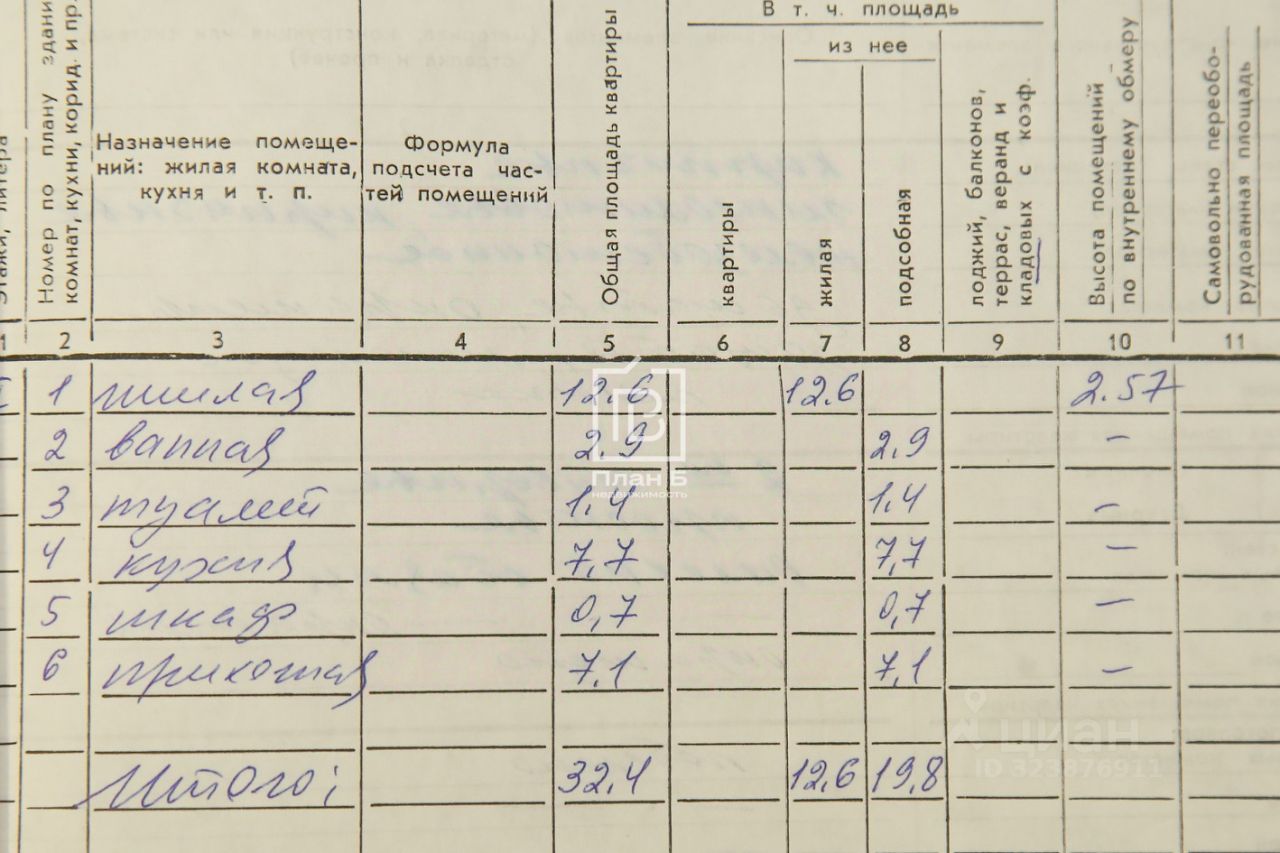 В т. ч. площадь
из нее
Номер по плану здани
комнат, кухни, корид. и пр.
Назначение помеще-
ний: жилая комната,
кухня и т. п.
Формула
подсчета час-
тей помещений
Общая площадь квартиры
квартиры
жилая
подсобная
лоджий, балконов,
террас, веранд и
кладовых с коэф.
Высота помещений
по внутреннему обмеру
Самовольно переобо-
рудованная площадь
1 2 3 4 5 6 7 8 9 10 11
1 жилая 12.6 12.6 2.57
2 ванная 2,9 2,9 –
3 туалет 1,4 1.4 –
4 кухня 7,7 7,7 –
5 шкаф 0,7 0,7 –
6 прихожая 7.1 7,1 –
Итого: 32.4 12.6 19,8
План Б
недвижимость
циан
ID 323876911